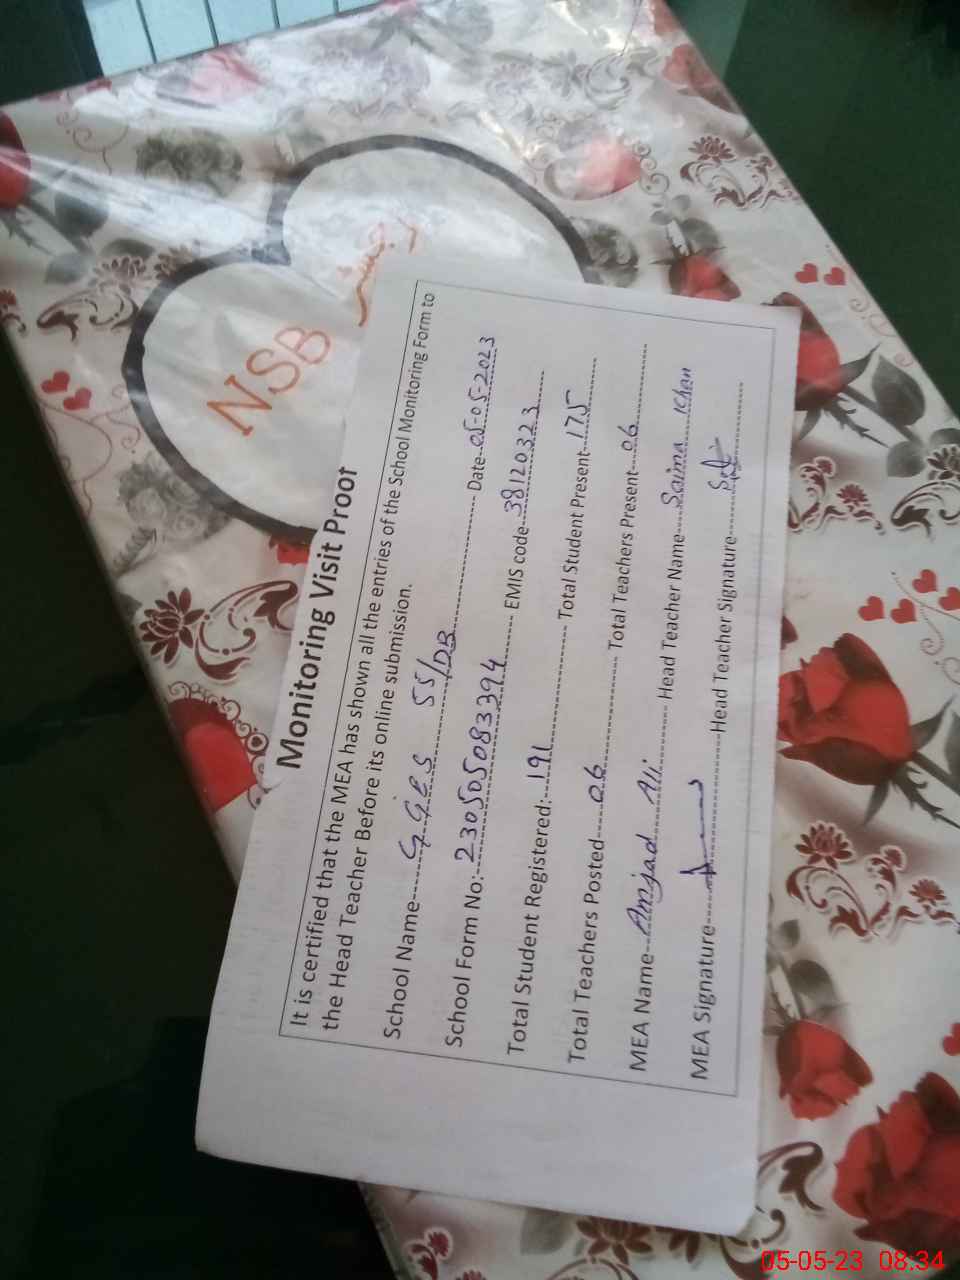 NSB
Monitoring Visit Proof
It is certified that the MEA has shown all the entries of the School Monitoring Form to
the Head Teacher Before its online submission.
School Name GGES 55/DB Date 05-05-2023
School Form No: 23050508 3394 EMIS code 38120323
Total Student Registered: 191 Total Student Present 175
Total Teachers Posted 06 Total Teachers Present 06
MEA Name Amjad Ali Head Teacher Name Saima Khan
MEA Signature Head Teacher Signature
05-05-23 08:34